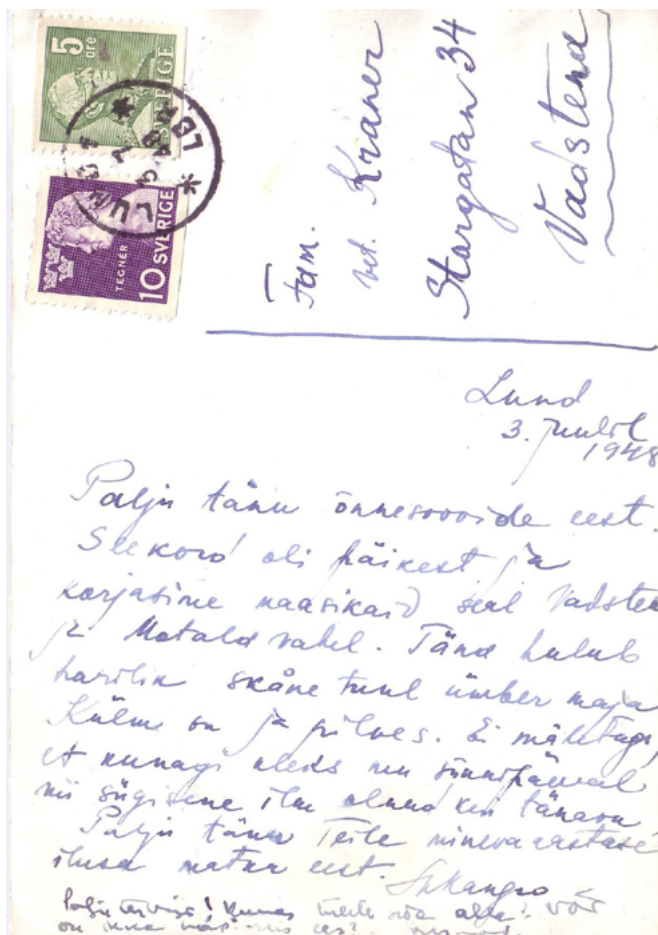 5
öre
SVERIGE
LUND
TEGNÉR
10 SVERIGE
Fam.
Kraner
Storgatan 34
Vadstena
Lund
3. juulil
1948
Palju tänu õnnesoovide eest.
Seekord oli päikest ja
korjasime maasikaid seal Vadsten
ja Motala vahel. Täna hulub
harilik skåne tuul ümber maja
Külm on ja pilves. Ei mäletagi,
et kunagi oleks mu sünnipäeval
nii sügisene ilm olnud kui tänavu
Palju tänu Teile minevaaastase
ilusa matka eest.
Palju tervisi! Kunas teile sõda
on ikka